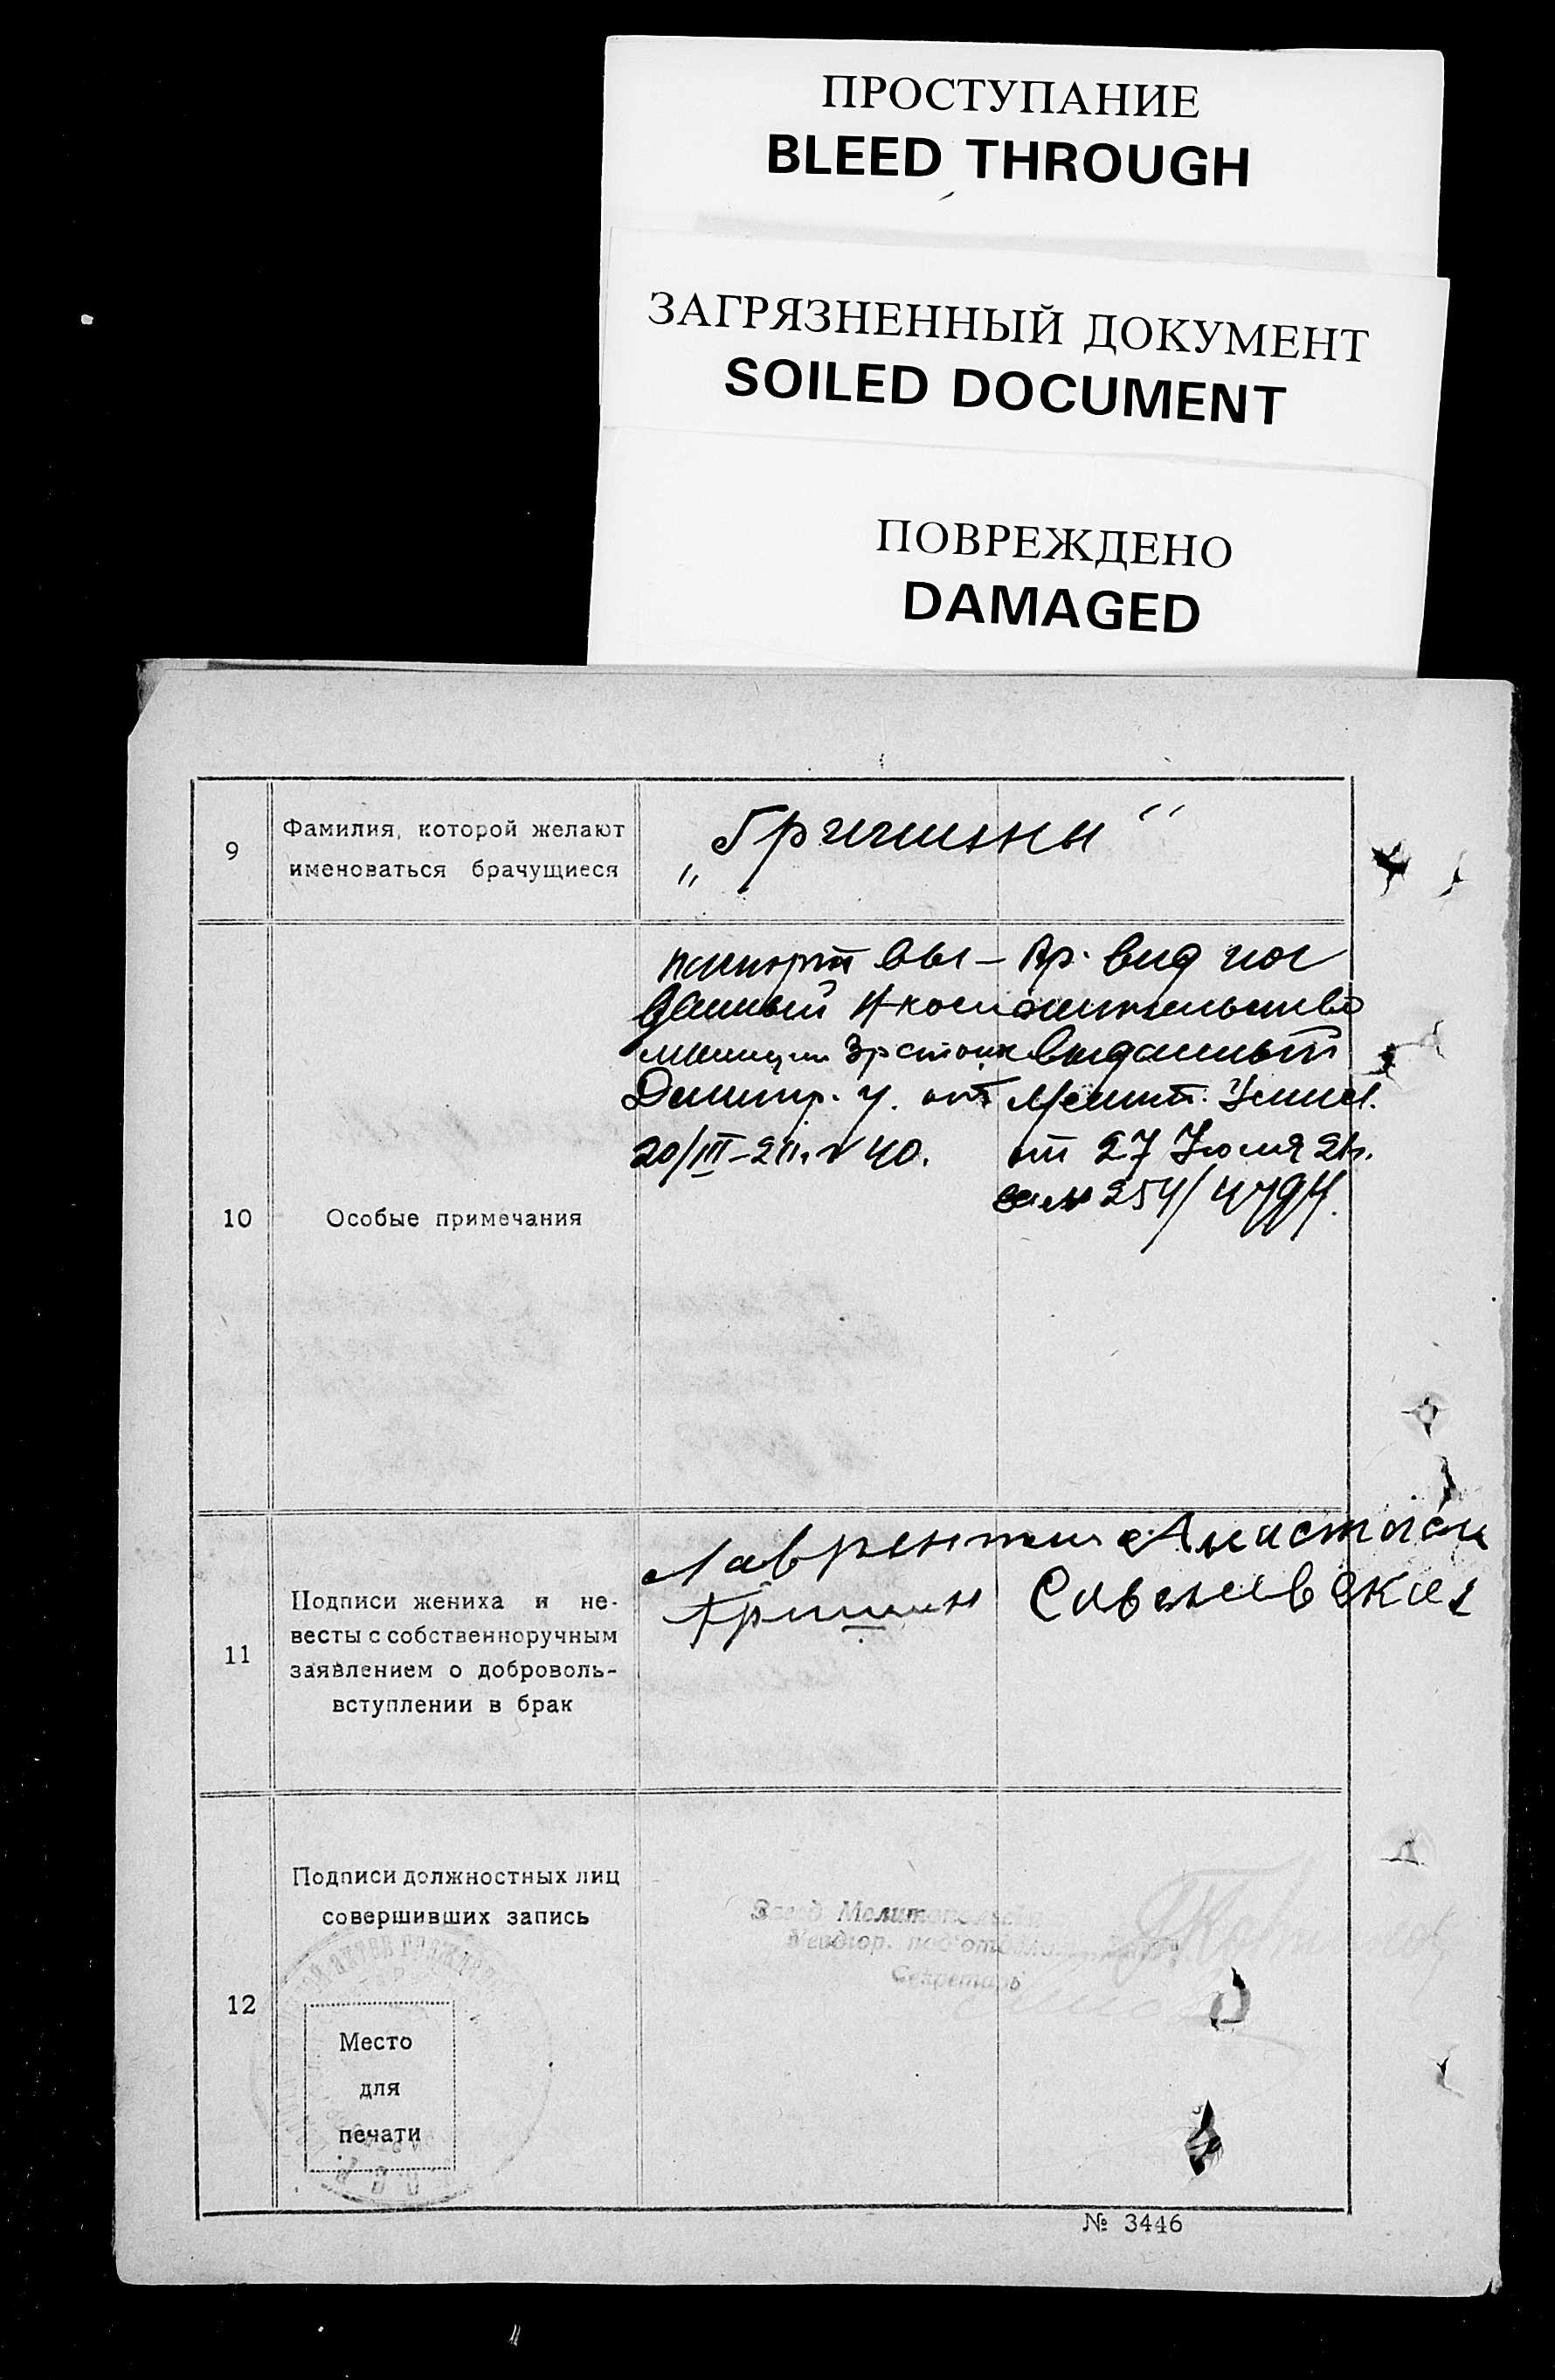 ПРОСТУПАНИЕ
BLEED THROUGH
ЗАГРЯЗНЕННЫЙ ДОКУМЕНТ
SOILED DOCUMENT
ПОВРЕЖДЕНО
DAMAGED
9
Фамилия, которой желают
именоваться брачущиеся
„Гришины“
10
Особые примечания
вы-
данный
милиции
от
20/III-21 г. № 40.
Вр. вид на
жительство
выданный
Мелит.
от 27 Июля 21 г.
за №
11
Подписи жениха и не-
весты с собственноручным
заявлением о доброволь-
вступлении в брак
Лаврентий
Гришин
Анастасия
Савельевская
12
Подписи должностных лиц
совершивших запись
Место
для
печати
Завед
Секретарь
№ 3446